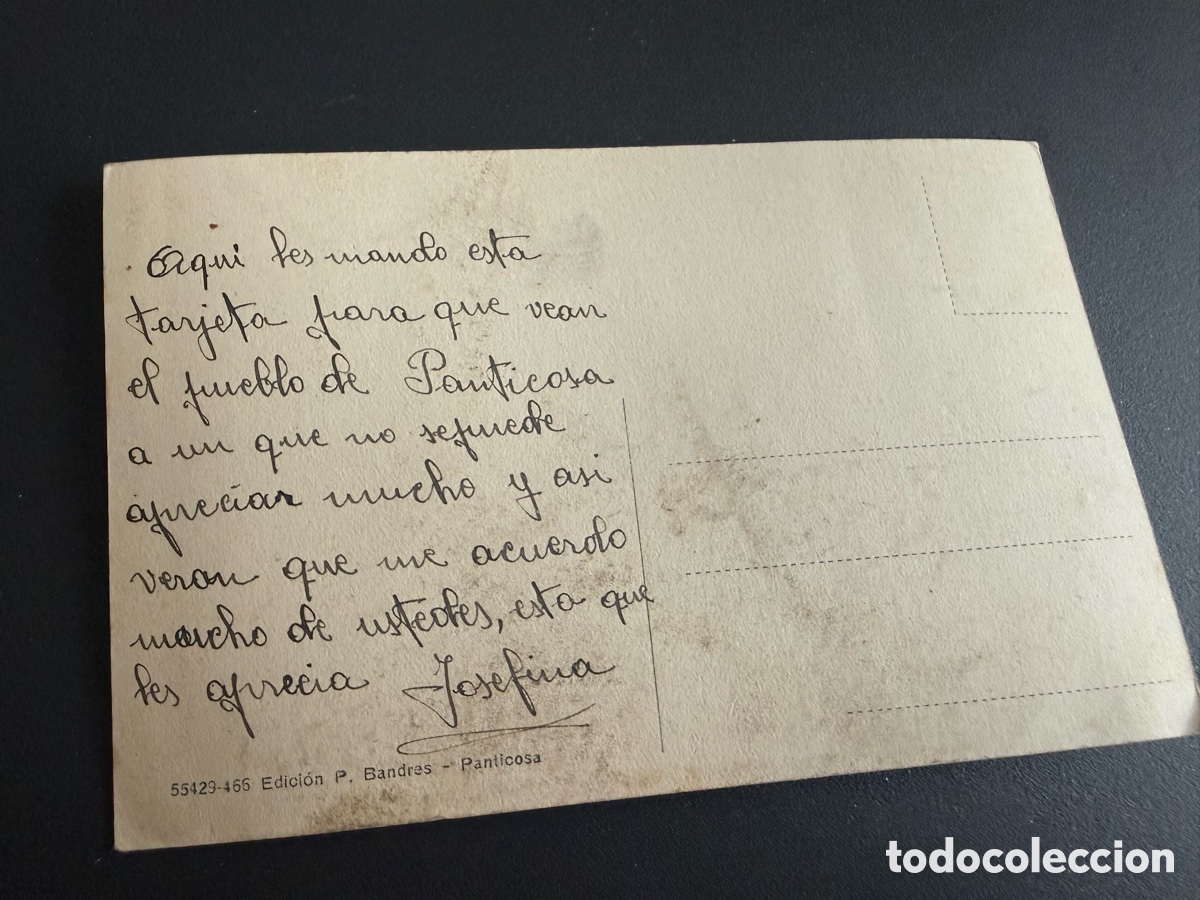 Aqui les mando esta
tarjeta para que vean
el pueblo de Panticosa
a un que no sepuede
apreciar mucho y asi
veran que me acuerdo
mucho de ustedes, esta que
les aprecia Josefina
55429-466 Edición P. Bandres - Panticosa
todocoleccion